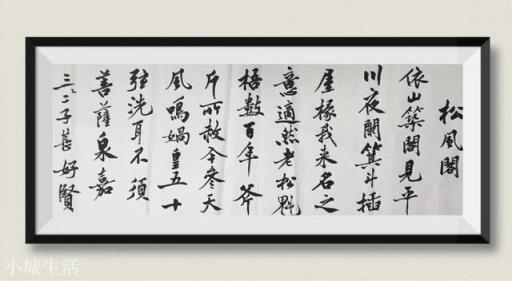 松風閣
依山築閣見平
川夜闌箕斗插
屋椽我来名之
意適然老松魁
梧數百年斧
斤所赦今參天
風鳴媧皇五十
弦洗耳不須
菩薩泉嘉
三二子甚好賢
小城生活